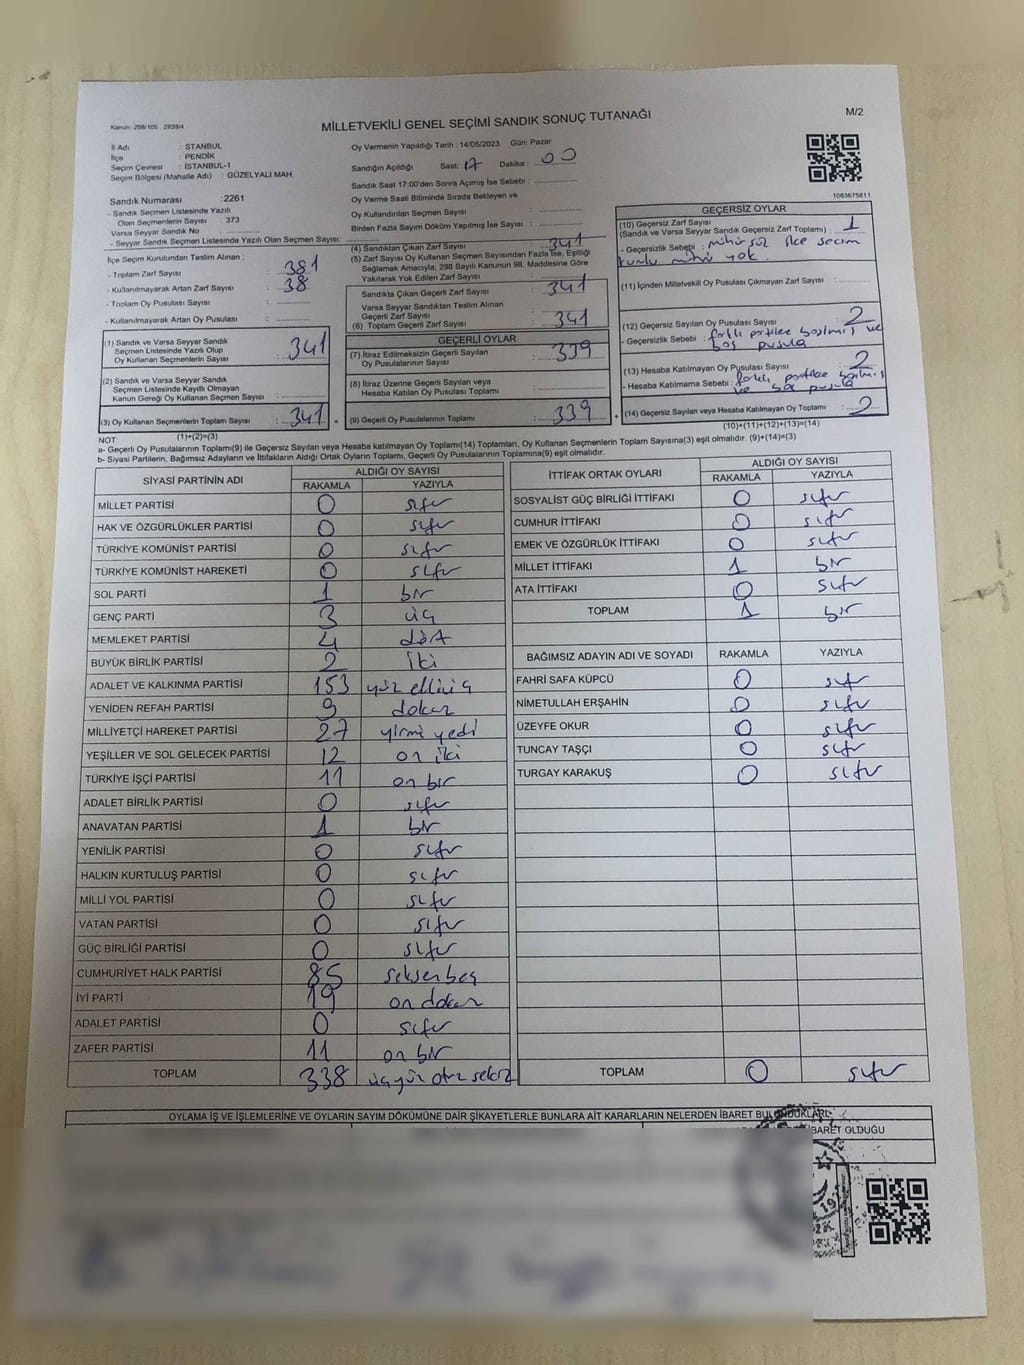 Kanun: 298/105 , 2839/4
MİLLETVEKİLİ GENEL SEÇİMİ SANDIK SONUÇ TUTANAĞI
M/2
İl Adı : STANBUL
İlçe : PENDİK
Seçim Çevresi : İSTANBUL-1
Seçim Bölgesi (Mahalle Adı) : GÜZELYALI MAH.
Oy Vermenin Yapıldığı Tarih : 14/05/2023 Gün: Pazar
Sandığın Açıldığı Saat: 17 Dakika : 00
Sandık Saat 17:00'den Sonra Açımış İse Sebebi :
Oy Verme Saati Bitiminde Sırada Bekleyen ve
Oy Kullandırılan Seçmen Sayısı :
Birden Fazla Sayım Döküm Yapılmış İse Sayısı :
1083675811
Sandık Numarası :2261
- Sandık Seçmen Listesinde Yazılı
Olan Seçmenlerin Sayısı : 373
Varsa Seyyar Sandık No :
- Seyyar Sandık Seçmen Listesinde Yazılı Olan Seçmen Sayısı:
İlçe Seçim Kurulundan Teslim Alınan ;
- Toplam Zarf Sayısı : 381
- Kullanılmayarak Artan Zarf Sayısı : 38
- Toplam Oy Pusulası Sayısı :
- Kullanılmayarak Artan Oy Pusulası :
(1) Sandık ve Varsa Seyyar Sandık
Seçmen Listesinde Yazılı Olup
Oy Kullanan Seçmenlerin Sayısı : 341
(2) Sandık ve Varsa Seyyar Sandık
Seçmen Listesinde Kayıtlı Olmayan
Kanun Gereği Oy Kullanan Seçmen Sayısı :
(3) Oy Kullanan Seçmenlerin Toplam Sayısı : 341 =
(1)+(2)=(3)
(4) Sandıktan Çıkan Zarf Sayısı : 341
(5) Zarf Sayısı Oy Kullanan Seçmen Sayısından Fazla İse, Eşitliği
Sağlamak Amacıyla, 298 Sayılı Kanunun 98. Maddesine Göre
Yakılarak Yok Edilen Zarf Sayısı :
Sandıkta Çıkan Geçerli Zarf Sayısı : 341
Varsa Seyyar Sandıktan Teslim Alınan
Geçerli Zarf Sayısı :
(6) Toplam Geçerli Zarf Sayısı : 341
GEÇERLİ OYLAR
(7) İtiraz Edilmeksizin Geçerli Sayılan
Oy Pusulalarının Sayısı : 339
(8) İtiraz Üzerine Geçerli Sayılan veya
Hesaba Katılan Oy Pusulası Toplamı :
(9) Geçerli Oy Pusulalarının Toplamı : 339 +
GEÇERSİZ OYLAR
(10) Geçersiz Zarf Sayısı
(Sandık ve Varsa Seyyar Sandık Geçersiz Zarf Toplamı) : 1
- Geçersizlik Sebebi : mühürsüz ilçe seçim
kurulu mührü yok.
(11) İçinden Milletvekili Oy Pusulası Çıkmayan Zarf Sayısı :
(12) Geçersiz Sayılan Oy Pusulası Sayısı : 2
- Geçersizlik Sebebi : farklı partilere basılmış ve
boş pusula
(13) Hesaba Katılmayan Oy Pusulası Sayısı : 2
- Hesaba Katılmama Sebebi : farklı partilere basılmış
ve boş pusula
(14) Geçersiz Sayılan veya Hesaba Katılmayan Oy Toplamı : 2
(10)+(11)+(12)+(13)=(14)
NOT:
a- Geçerli Oy Pusulalarının Toplamı(9) ile Geçersiz Sayılan veya Hesaba Katılmayan oy Toplamı(14) Toplamları, Oy Kullanan Seçmenlerin Toplam Sayısına(3) eşit olmalıdır. (9)+(14)=(3)
b- Siyasi Partilerin, Bağımsız Adayların ve İttifakların Aldığı Ortak Oyların Toplamı, Geçerli Oy Pusulalarının Toplamına(9) eşit olmalıdır.
SİYASİ PARTİNİN ADI ALDIĞI OY SAYISI
RAKAMLA YAZIYLA
MİLLET PARTİSİ 0 sıfır
HAK VE ÖZGÜRLÜKLER PARTİSİ 0 sıfır
TÜRKİYE KOMÜNİST PARTİSİ 0 sıfır
TÜRKİYE KOMÜNİST HAREKETİ 0 sıfır
SOL PARTİ 1 bir
GENÇ PARTİ 3 üç
MEMLEKET PARTİSİ 4 dört
BÜYÜK BİRLİK PARTİSİ 2 iki
ADALET VE KALKINMA PARTİSİ 153 yüz elli üç
YENİDEN REFAH PARTİSİ 9 dokuz
MİLLİYETÇİ HAREKET PARTİSİ 27 yirmi yedi
YEŞİLLER VE SOL GELECEK PARTİSİ 12 on iki
TÜRKİYE İŞÇİ PARTİSİ 11 on bir
ADALET BİRLİK PARTİSİ 0 sıfır
ANAVATAN PARTİSİ 1 bir
YENİLİK PARTİSİ 0 sıfır
HALKIN KURTULUŞ PARTİSİ 0 sıfır
MİLLİ YOL PARTİSİ 0 sıfır
VATAN PARTİSİ 0 sıfır
GÜÇ BİRLİĞİ PARTİSİ 0 sıfır
CUMHURİYET HALK PARTİSİ 85 seksen beş
İYİ PARTİ 19 on dokuz
ADALET PARTİSİ 0 sıfır
ZAFER PARTİSİ 11 on bir
TOPLAM 338 üç yüz otuz sekiz
İTTİFAK ORTAK OYLARI ALDIĞI OY SAYISI
RAKAMLA YAZIYLA
SOSYALİST GÜÇ BİRLİĞİ İTTİFAKI 0 sıfır
CUMHUR İTTİFAKI 0 sıfır
EMEK VE ÖZGÜRLÜK İTTİFAKI 0 sıfır
MİLLET İTTİFAKI 1 bir
ATA İTTİFAKI 0 sıfır
TOPLAM 1 bir
BAĞIMSIZ ADAYIN ADI VE SOYADI RAKAMLA YAZIYLA
FAHRİ SAFA KÜPCÜ 0 sıfır
NİMETULLAH ERŞAHİN 0 sıfır
ÜZEYFE OKUR 0 sıfır
TUNCAY TAŞÇI 0 sıfır
TURGAY KARAKUŞ 0 sıfır
TOPLAM 0 sıfır
OYLAMA İŞ VE İŞLEMLERİNE VE OYLARIN SAYIM DÖKÜMÜNE DAİR ŞİKAYETLERLE BUNLARA AİT KARARLARIN NELERDEN İBARET BULUNDUKLARI
İBARET OLDUĞU